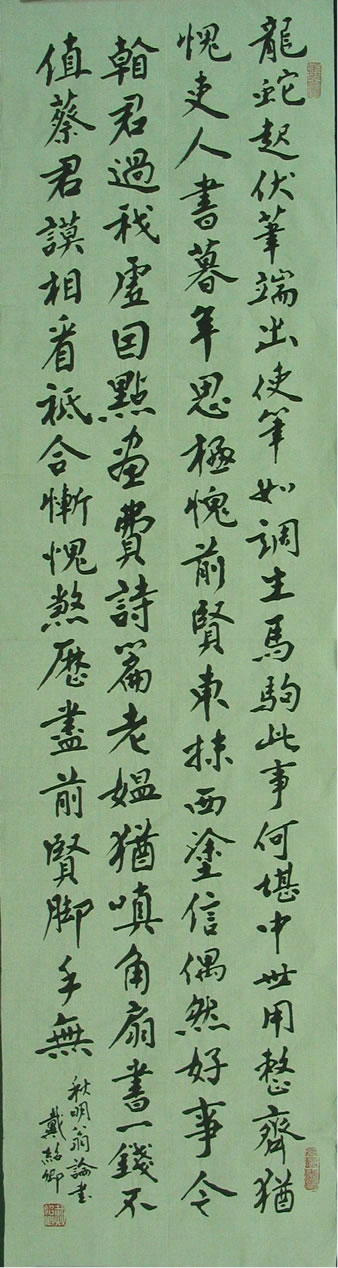 龍蛇起伏筆端出使筆如調生馬駒此事何堪中世用整齊猶
愧吏人書暮年思極愧前賢東抹西塗信偶然好事令
翰君過我虛因點畫費詩篇老媼猶嗔角扇書一錢不
值蔡君謨相看祗合慚愧煞歷盡前賢腳手無
秋明翁論書
戴紹卿